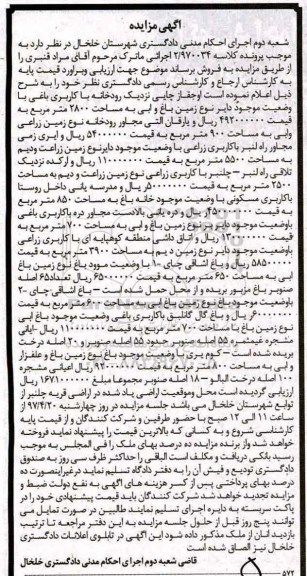 آگهی مزایده
شعبه دوم اجرای احکام مدنی دادگستری شهرستان خلخال در نظر دارد به
موجب پرونده کلاسه ۲/۹۷۰۰۳۴ اجرائی ماترک مرحوم آقای مراد قنبری را
از طریق مزایده به فروش برساند موضوع جهت ارزیابی وبرآورد قیمت پایه
به کارشناس ارجاع و کارشناس رسمی دادگستری نظر خود را به شرح
ذیل اعلام نموده است اوجقاز چایی نزدیک رودخانه با کاربری باغی با
وضعیت موجود دایر نوع زمین باغ و آبی به مساحت ۲۸۰۰ متر مربع به
قیمت ریال و یارقان التی مجاور رودخانه نوع زمین زراعی
وآبی به مساحت ۹۰۰ متر مربع به قیمت ریال و ایری زمی
مجاور راه لنبر با کاربری زراعی با وضعیت موجود دایرنوع زمین زراعت ودیم
به مساحت ۵۵۰۰ متر مربع به قیمت ریال و ارکده نزدیک
تلاقی راه لنبر – چلنبر با کاربری زراعی نوع زمین زراعت و دیم به مساحت
۲۵۰۰ متر مربع به قیمت ریال و مدرسه یانی داخل روستا
باکاربری مسکونی با وضعیت موجود خانه باغ به مساحت ۸۵۰ متر مربع
به قیمت ریال و دره یانی بالادست مجاور دره باکاربری باغی
باوضعیت موجود دایر نوع زمین باغ و آبی با مساحت ۷۰۰ متر مربع به
قیمت ریال و اتاق داشی منطقه کوهپایه ای با کاربری زراعی
باوضعیت موجود دایر نوع زمین دیم به مساحت ۳۹۰۰ متر مربع به قیمت
ریال و باغ اشاقی چای -۱ با وضعیت موود باغ نوع زمین باغ
آبی به مساحت ۶۵۰ متر مربع به قیمت ریال تعداد۶۵ اصله
صنوبر باغ مزبور بریده و از محل حمل شده است – باغ اشاقی چای -۲
باوضعیت موجود باغ نوع زمین باغ آبی به مساحت متر مربع به قیمت
ریال و باغ گال گانلیق باکاربری باغی وضعیت موجود باغ آبی
نوع زمین باغ با مساحت ۷۰۰ متر مربع به قیمت ریال -اعیانی
مشجره غیرمثمر ۵۵ اصله صنوبر حدود ۵۵ اصله صنوبر و ۲۰ اصله درخت
بریده شده است – کوم یری با وضعیت موجود باغ نوع زمین باغ و علفزار
و آبی به مساحت ۸۰۰ متر مربع به قیمت ریال اعیانی مشجره
۱۰۰ اصله درخت آلبالو – ۱۸ اصله صنوبر مجموعا مبلغ ریال
ارزیابی گردیده است محل وموقعیت اراضی یاد شده در اراضی قریه چلنبر از
توابع شهرستان خلخال می باشد جلسه مزایده در روز چهارشنبه ۹۷/۴/۲۰ از
ساعت ۱۱ الی ۱۲ صبح با حضور طرفین و شرکت کنندگان و از قیمت پایه
کارشناسی شروع و به کسانی که بالاترین قیمت را پیشنهاد نماید فروخته
خواهد شد واز برنده مزایده ده درصد بهای ملک را فی المجلس به موجب
رسید بانکی دریافت و مکلف است الباقی را حداکثر ظرف سی روز به صندوق
دادگستری تودیع و فیش آن را به دفتر دادگاه تسلیم نماید درغیراینصورت ده
درصد بهای پرداختی پس از کسر هزینه های آگهی به نفع دولت ضبط و
مزایده تجدید خواهد شد شرکت کنندگان باید قیمت پیشنهادی خود را در
پاکت سربسته به دایره اجرای تسلیم نمایند طالبین در صورت تمایل می
توانند پنج روز قبل از حلول جلسه مزایده به این دفتر مراجعه تا ترتیب
بازدید آنان از ملک مذکور داده شود این آگهی در تابلوی اعلانات دادگستری
خلخال نیز الصاق شده است
قاضی شعبه دوم اجرای احکام مدنی دادگستری خلخال
۵۷۲